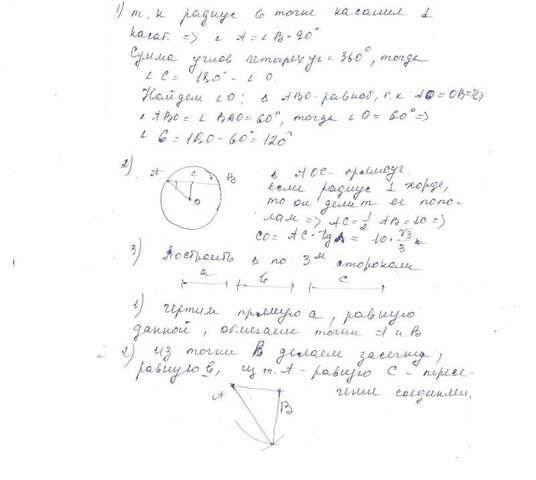 1) т. к радиус в точке касания ⊥
касат. => ∠ A = ∠ B = 90°
Сумма углов четырех уг = 360°, тогда
∠ C = 180° - ∠ O.
Найдем ∠O; Δ ABO-равноб, т.к AO = OB =>
∠ ABO = ∠ BAO = 60°, тогда ∠ O = 60° =>
∠ C = 180 - 60° = 120°
2)
A C B
O
Δ AOC - прямоуг.
если радиус ⊥ хорде,
то он делит ее попо-
лам => AC = 1/2 AB = 10 =>
CO = AC · tg A = 10 · √3/3
3) Построить Δ по 3м сторонам
a b c
1) Чертим прямую a, равную
данной, обозначаем точки A и B
2) из точки B делаем засечку,
равную b, из т. A - равную C - пересе-
чение соединяем.
A
B